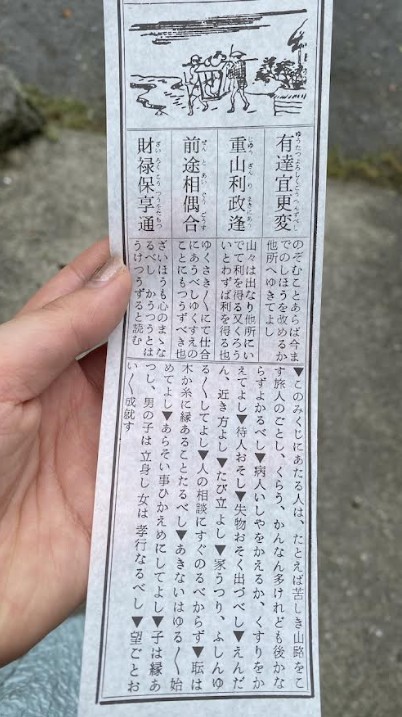 有達宜更変
のぞむことあらば今ま
でのしほうを改めるか
他所へゆきてよし
重山利政逢
山々は出なり他所にい
でて利を得る又くろう
いとわずば利を得る也
前途相偶合
ゆくさき〳〵にて仕合
にあうべしゆくすえの
ことにもつうずべき也
財禄保享通
ざいほうも心のまゝな
るべし かうつうとは
うけつうずると読む
▼このみくじにあたる人は、たとえば苦しき山路をこ
す旅人のごとし、くらう、かんなん多けれども後かな
らずよかるべし▼病人いしやをかえるか、くすりをか
えてよし▼待人おそし▼失物おそく出づべし▼えんだ
ん、近き方よし▼たび立よし▼家うつり、ふしんゆ
る〳〵してよし▼人の相談にすぐのるべからず▼耺は
木か糸に縁あることたるべし▼あきないはゆる〳〵始
めてよし▼あらそい事ひかえめにしてよし▼子は縁あ
つし、男の子は立身し女は孝行なるべし▼望ごとお
い〳〵成就す